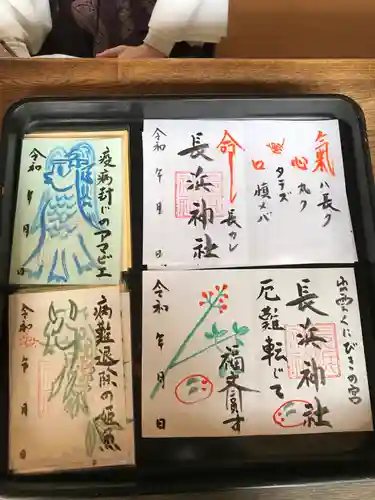 疫病封じのアマビエ
令和 年 月 日
氣ハ長ク
心ハ丸ク
口 慎メバ
命 長カレ
長浜神社
令和 年 月 日
病難退除の姫魚
令和 年 月 日
出雲くにびきの宮
長浜神社
厄難転じて
福
令和 年 月 日